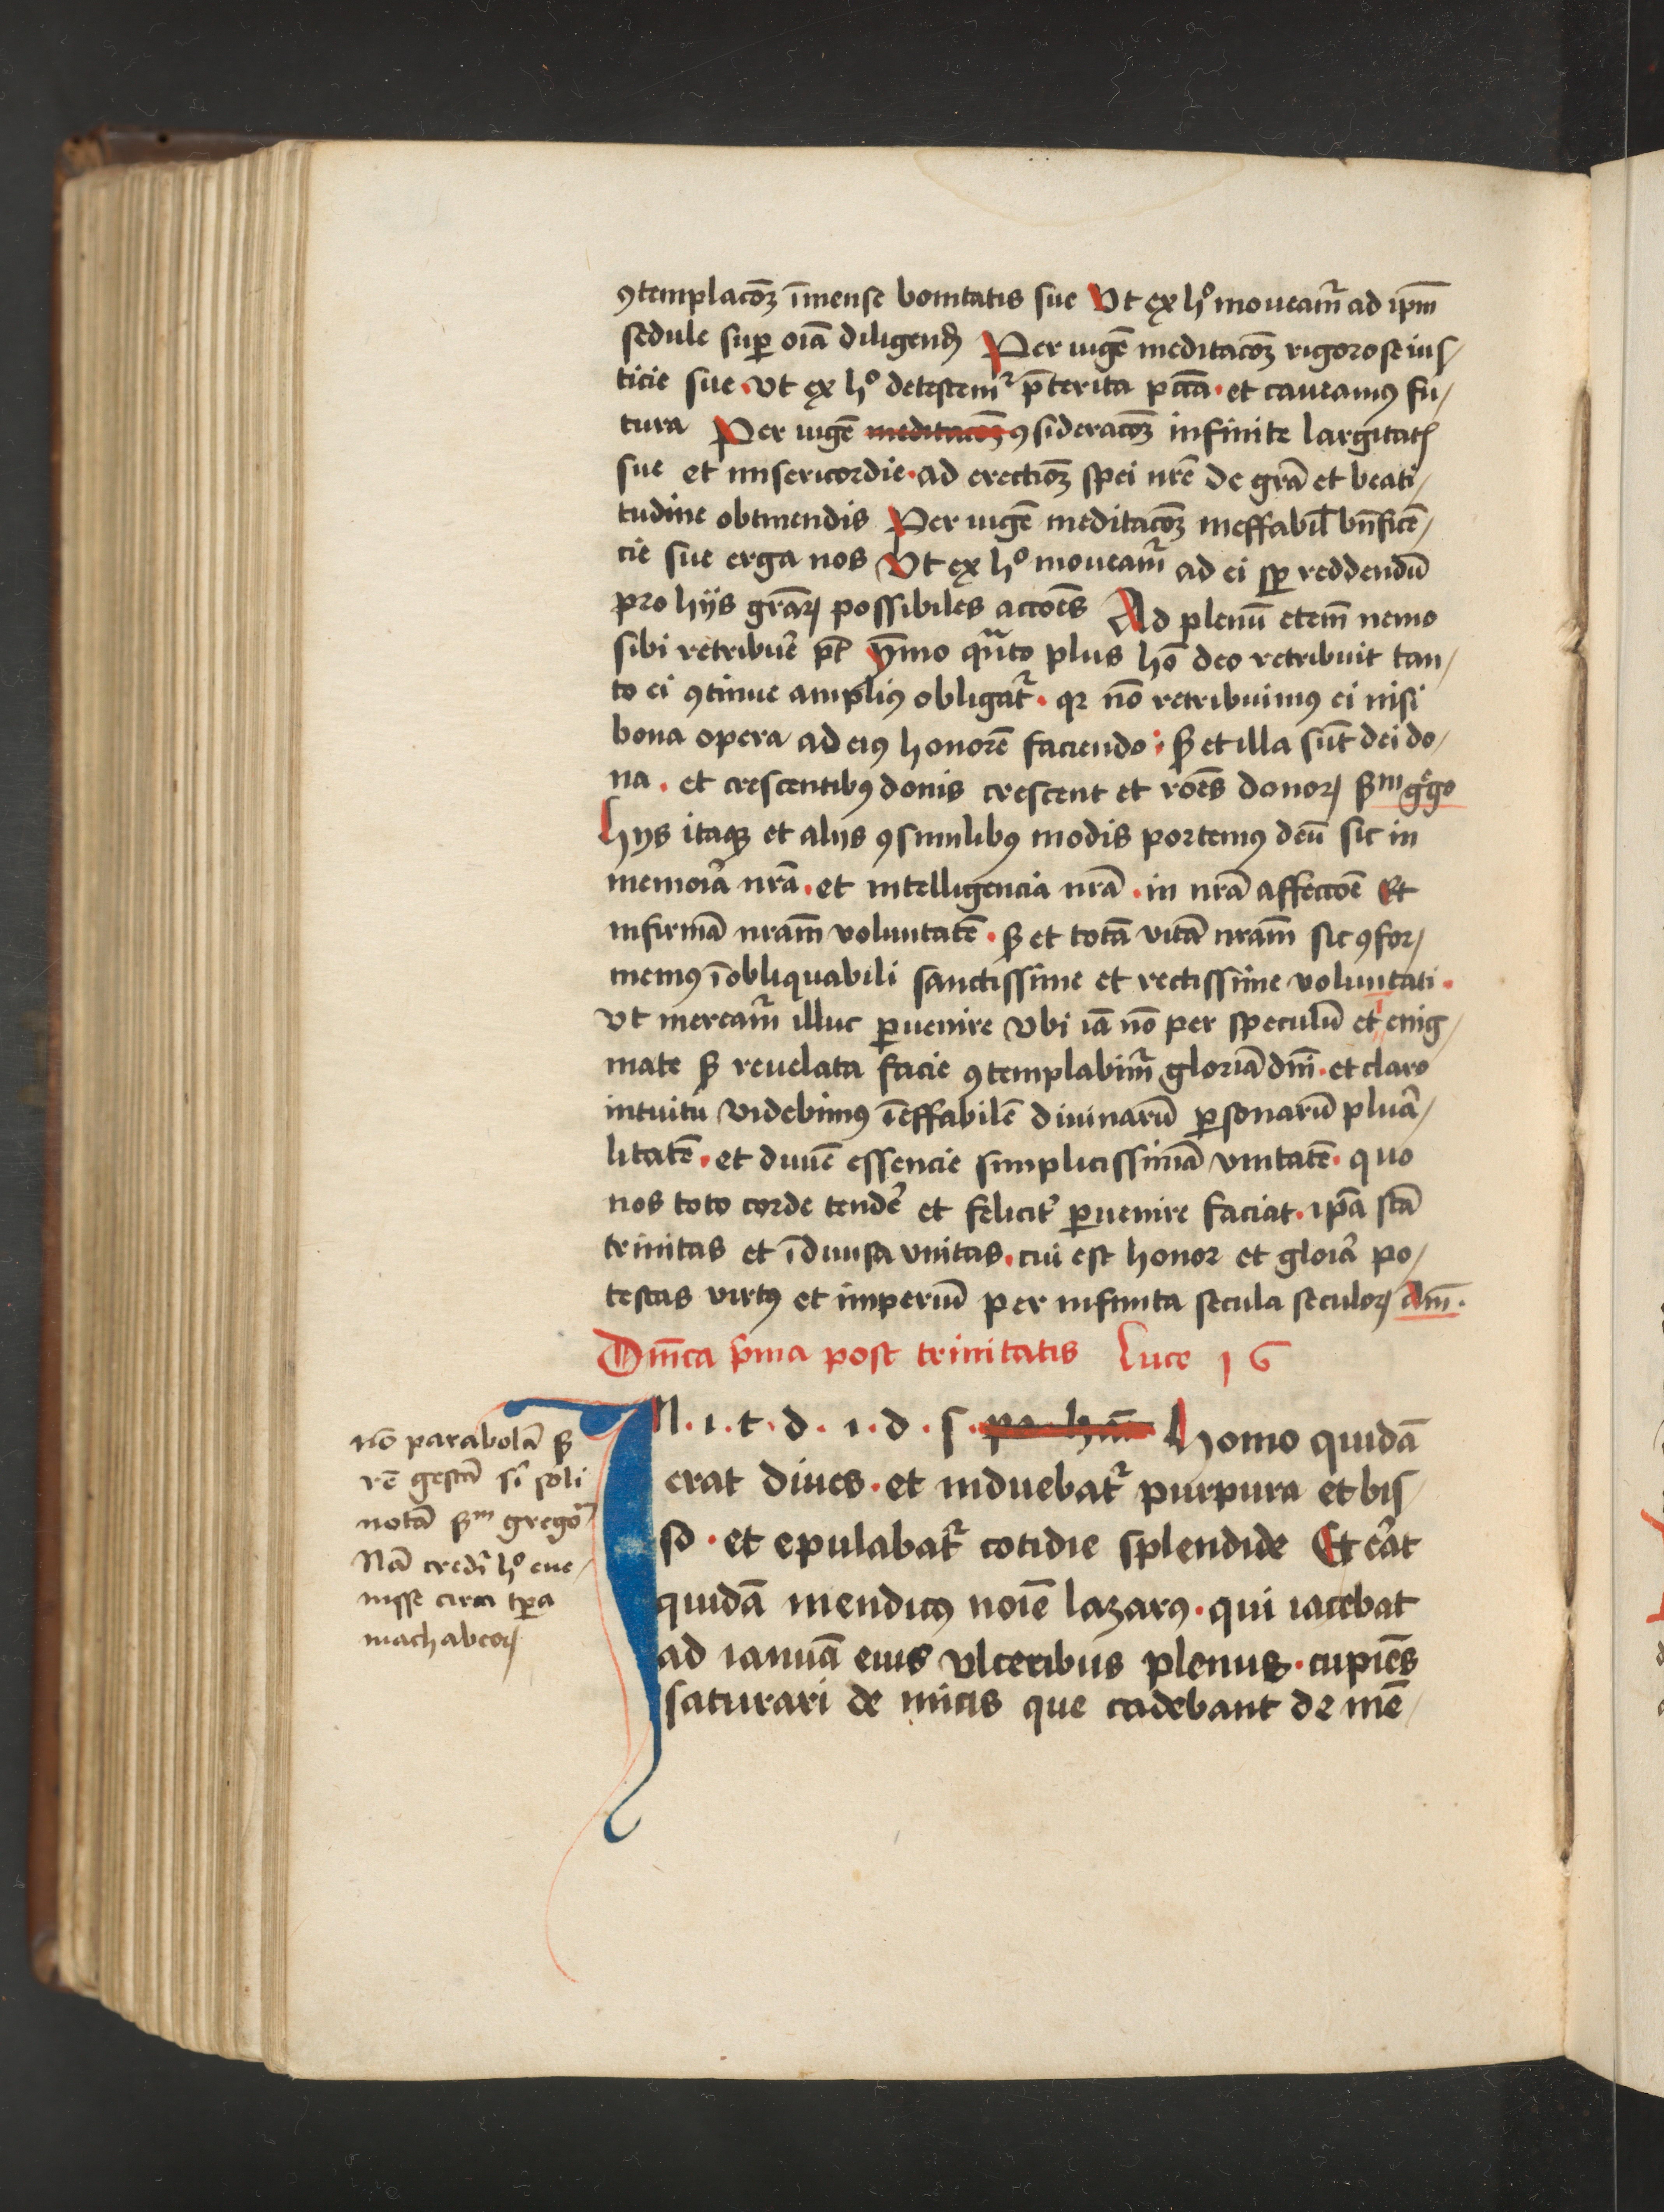 ꝯtemplacōꝫ īmense bonitatis sue Vt ex hͦ moueamr̄ ad ip̄m
sedule suꝑ oīa diligend Per iugē meditacōꝫ rigorose ius⸗
ticie sue · Vt ex hͦ detestemr̄ p̄terita pccā · et caueamꝰ fu⸗
tura Per iugē meditacōꝫ ꝯsideracōꝫ infinite largitatꝭ
sue et misericordie · ad erectiōꝫ spei nr̄e de grā et beati⸗
tudine obtinendis Per iugē meditacōꝫ ineffabil bn̄ficē⸗
cie sue erga nos Vt ex hͦ moueamr̄ ad ei sꝑ reddendū
pro hijs grāꝝ possibiles accōēs Ad plenū etem̄ nemo
sibi retribuē pt̄ ymo qñto plus hō deo retribuit tan⸗
to ei ꝯtinue ampliꝰ obligatr̄ · qꝛ nō retribuimꝰ ei nisi
bona opera ad eiꝰ honorē faciendo : sꝫ et illa sūt dei do⸗
na · et crescentibꝰ donis crescent et rōēs donoꝝ scdm gͤgo
hijs itaqꝫ et alijs ꝯsimilibꝰ modis portemꝰ deū sic in
memoīa nrā · et intelligencia nrā · in nrā affeccōē Et
infirmā nrām voluntatē · sꝫ et totā vitā nrām sic ꝯfor⸗
memꝰ īobliquabili sanctissime et rectissime voluntati ·
vt mereamr̄ illuc ꝑuenire Vbi iā nō per speculū et enig⸗
mate sꝫ reuelata facie ꝯtemplabimr̄ gloriā dn̄i · et claro
intuitu videbimꝰ īeffabilē diuinarū ꝑsonarū plura⸗
litatē · et diuīē essencie simplicissimā vnitatē · quo
nos toto corde tendē et felicitr̄ ꝑuenire faciat · ip̄a scā
trinitas et īdiuisa vnitas · cui est honor et gloīa po⸗
testas virtꝰ et imperiū per infinita secula seculoꝝ Am̄ ·
Dn̄ica p̄ma post trinitatis Luce 16
IN · i · t · d · i · d · s · pa · hāc Homo quidā
erat diues · et induebatr̄ purpura et bis⸗
so · et epulabatr̄ cotidie splendide Et erāt
quidā mendicꝰ noīe lazarꝰ · qui iacebat
ad ianuā eius vlceribus plenus · cupiēs
saturari de micis que cadebant de mē⸗
nō parabolā sꝫ
rē gestā si soli
notā scdm gregō
Nā credi hͦ eue⸗
nisse circa tꝑa
machabeoꝝ